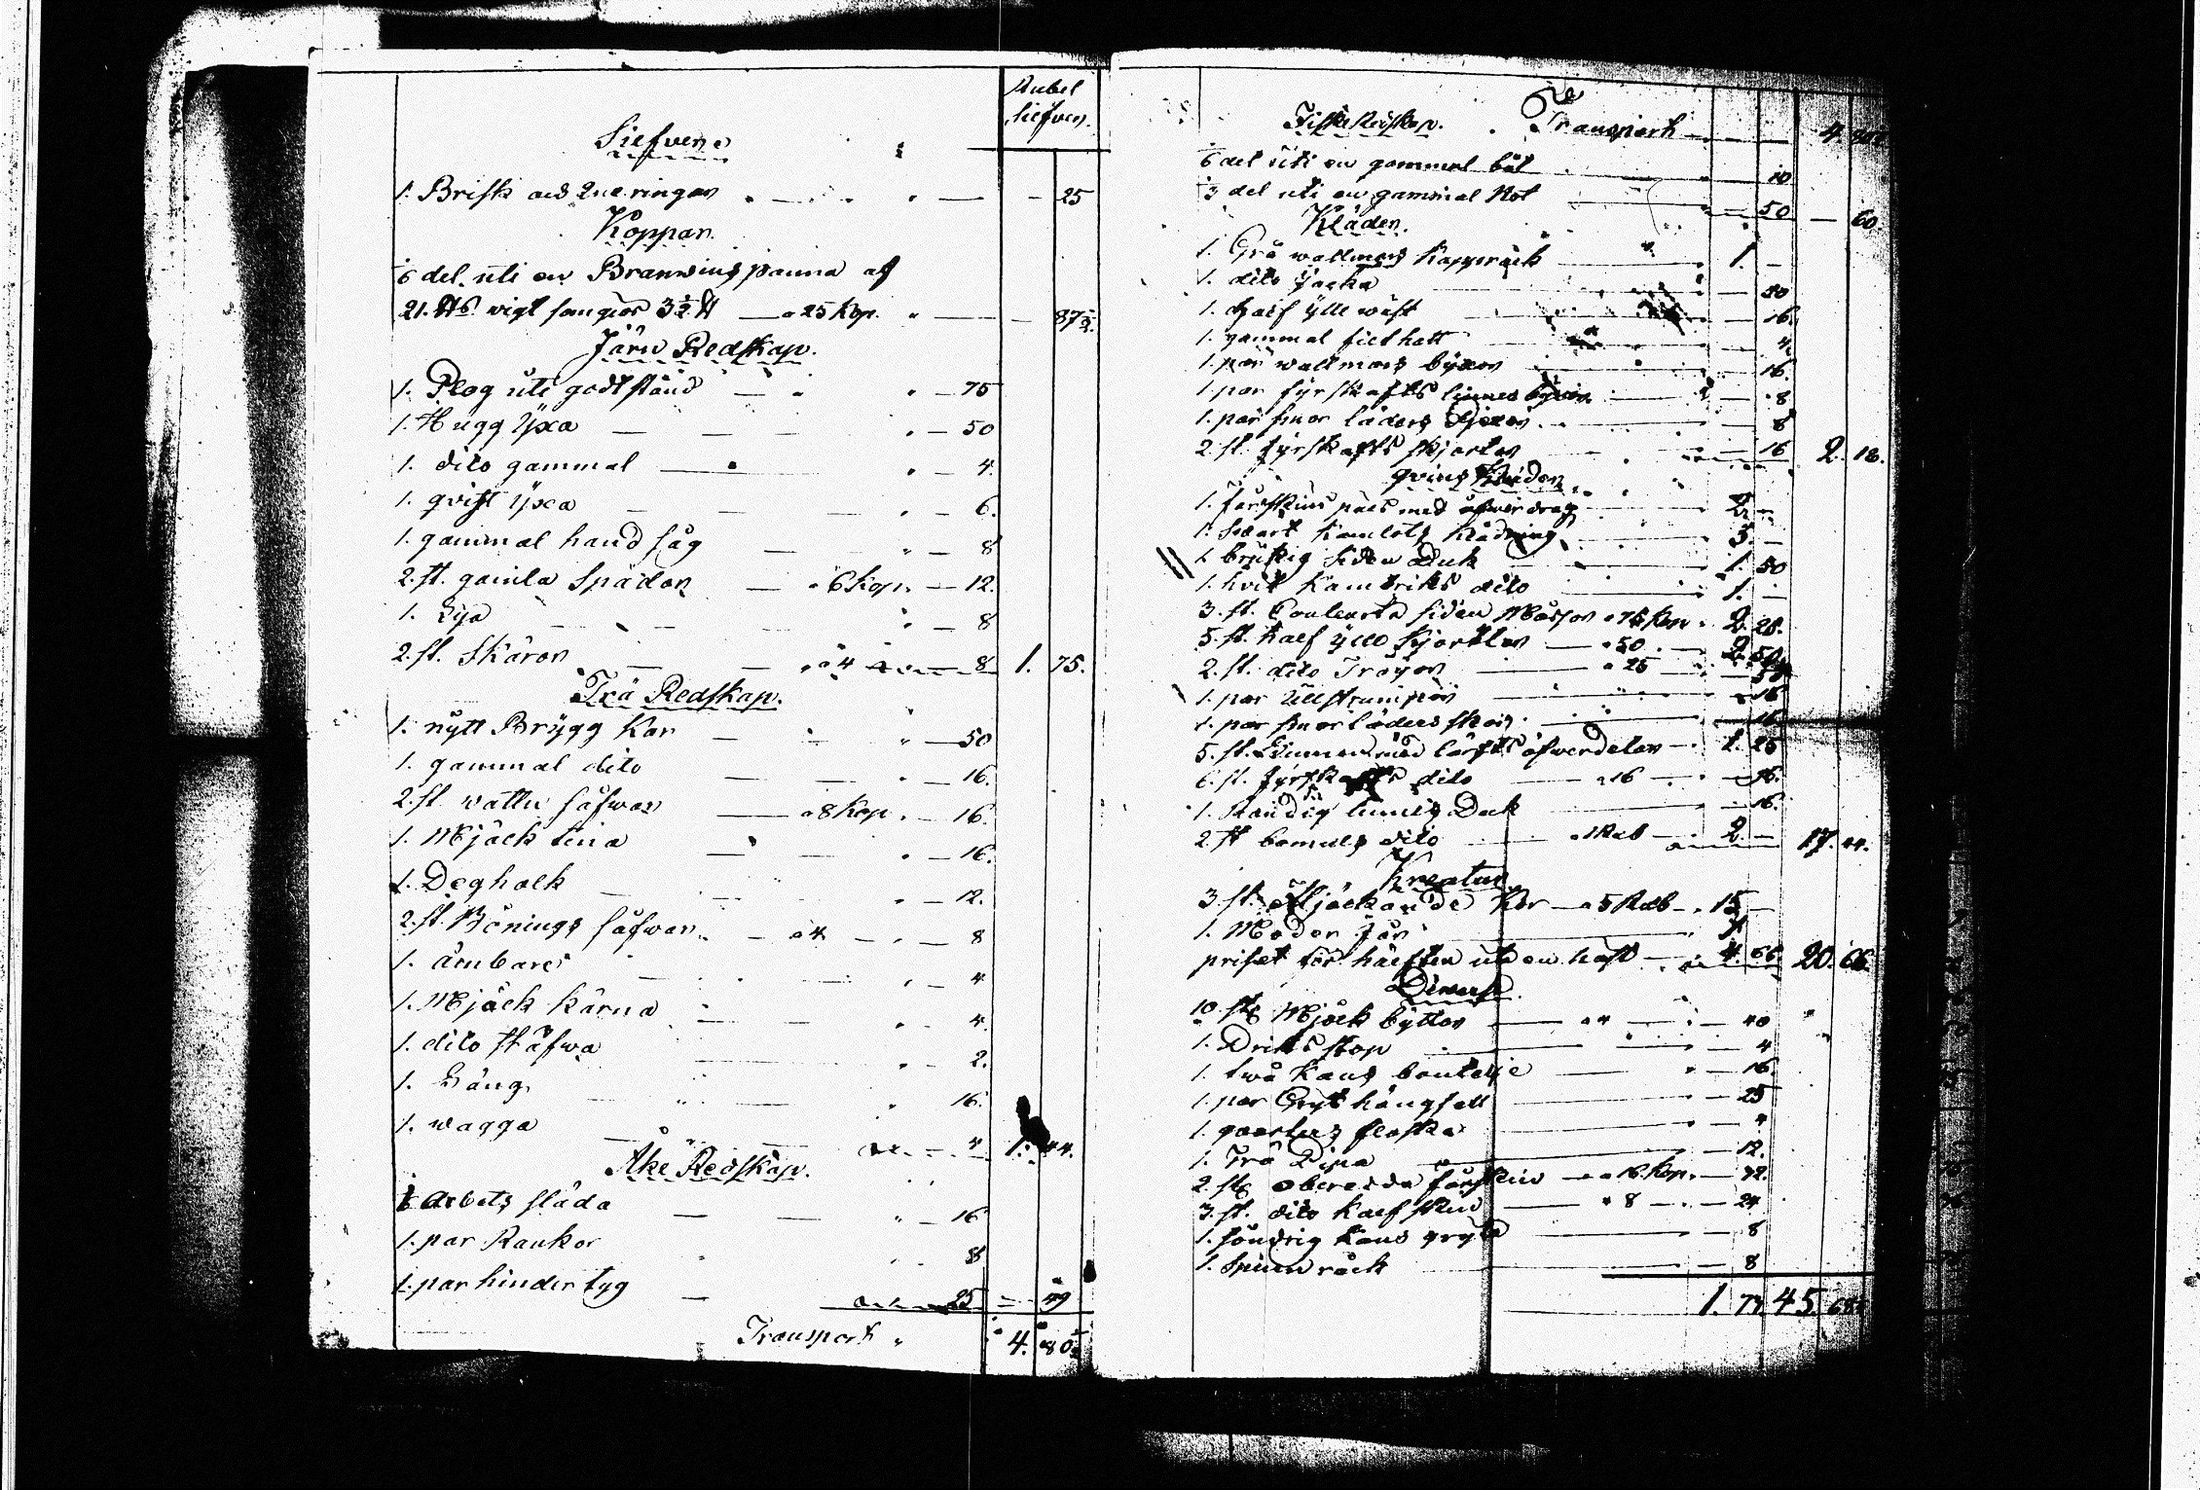 Rubel
Silfver.
Silfver
1. Brisk ned 2ne ringar — 25
Koppar.
1/6 del uti en Branwins panna af
21. ℔s wigt som giör 3 1/2 ℔ — a 25 Kop. — 87 1/2
Järn Redskap.
1. Plog uti godt stånd — 75
1. Hugg Yxa — 50
1. dito gammal — 4
1. qvist Yxa — 6.
1. gammal hand såg — 8
2. st. gamla Spadar — a 6 Kop. — 12.
1. Lya — 8
2. st. Skäror — a 4 — 8 1. 75.
Trä Redskap.
1. nytt Brygg Kar — 50
1. gammal dito — 16.
2. st. wattu såfwar — a 8 Kop. — 16.
1. Mjölk tina — 16.
1. Deg holk — 12.
2. st. Bönings såfwar — a 4 — 8
1. ämbare — 4
1. Mjölk kärna — 4.
1. dito Håfwa — 2.
1. Säng — 16.
1. wagga — 4 1. 44.
Åke Redskap.
1. Arbets släda — 16
1. par Rankor — 8
1. par hinder tyg — 25 — 49
Transport 4. 80 1/2
Fiske Redskap. Transport 4. 80 1/2
1/6 del uti en gammal båt — 10
1/3 del uti en gammal Not — 50 — 60.
Kläder.
1. Grå wallmars Kapprock — 1. —
1. dito Jacka — 50
1. half ylle wäst — 16.
1. gammal filt hatt — 4.
1. par wallmars byxor — 16.
1. par fyrskafts linnes byxor — 8
1. par smor läders — 8
2. st. fyrskafts skjortor — 16 2. 18.
qvins Kläder
1. fårskins päls med öfwerdrag — 2. —
1. Swart Kamlots Klädning — 3. —
1. brokig Siden Duk — 1. 50
1. hvit Kamdriks dito — 1. —
3. st. Couleurta siden Mössor a 75 Kop. 2. 25.
5. st. half ylle kjortlar — a 50 — 2. 50
2. st. dito Tröyor — a 25 — 50
1. par Ullstrumpor — 16
1. par smorläders skor — 16
5. st. Linnen med lärfts öfwerdelar — 1. 25
6. st. fyrskafts dito — a 16 — 96.
1. Randig linnes Duk — 16.
2. st bomuls dito — a 1 Rub — 2. — 17. 44.
Kreatur
3. st. Mjölkande Kor — a 5 Rub — 15 —
1. Moder får — 1
priset för hälften uti en häst — 4. 66 20. 66.
Diverse
10. st. Mjölk byttor — a 4 — 40
1. Dricks stop — 4
1. twå Kans boutelje — 16
1. par Gryt hängsell — 25
1. qvarters flaska — 4
1. Trä Pipa — 12.
2. st. oberedda fårskin — a 16. Kop. — 32.
3. st. dito kalfskin — a 8 — 24
1. söndrig Kans gryta — 8
1. Spinn råck — 8
1. 73 45. 68 1/2